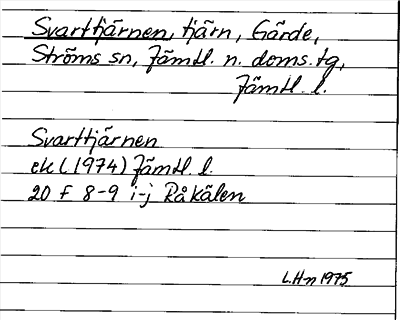 Svarttjärnen, tjärn, Gärde,
Ströms sn, Jämtl. n. doms.tg,
Jämtl. l.
Svarttjärnen
ek (1974) Jämtl. l.
20 F 8-9 i-j Råkälen
L.H-n 1975